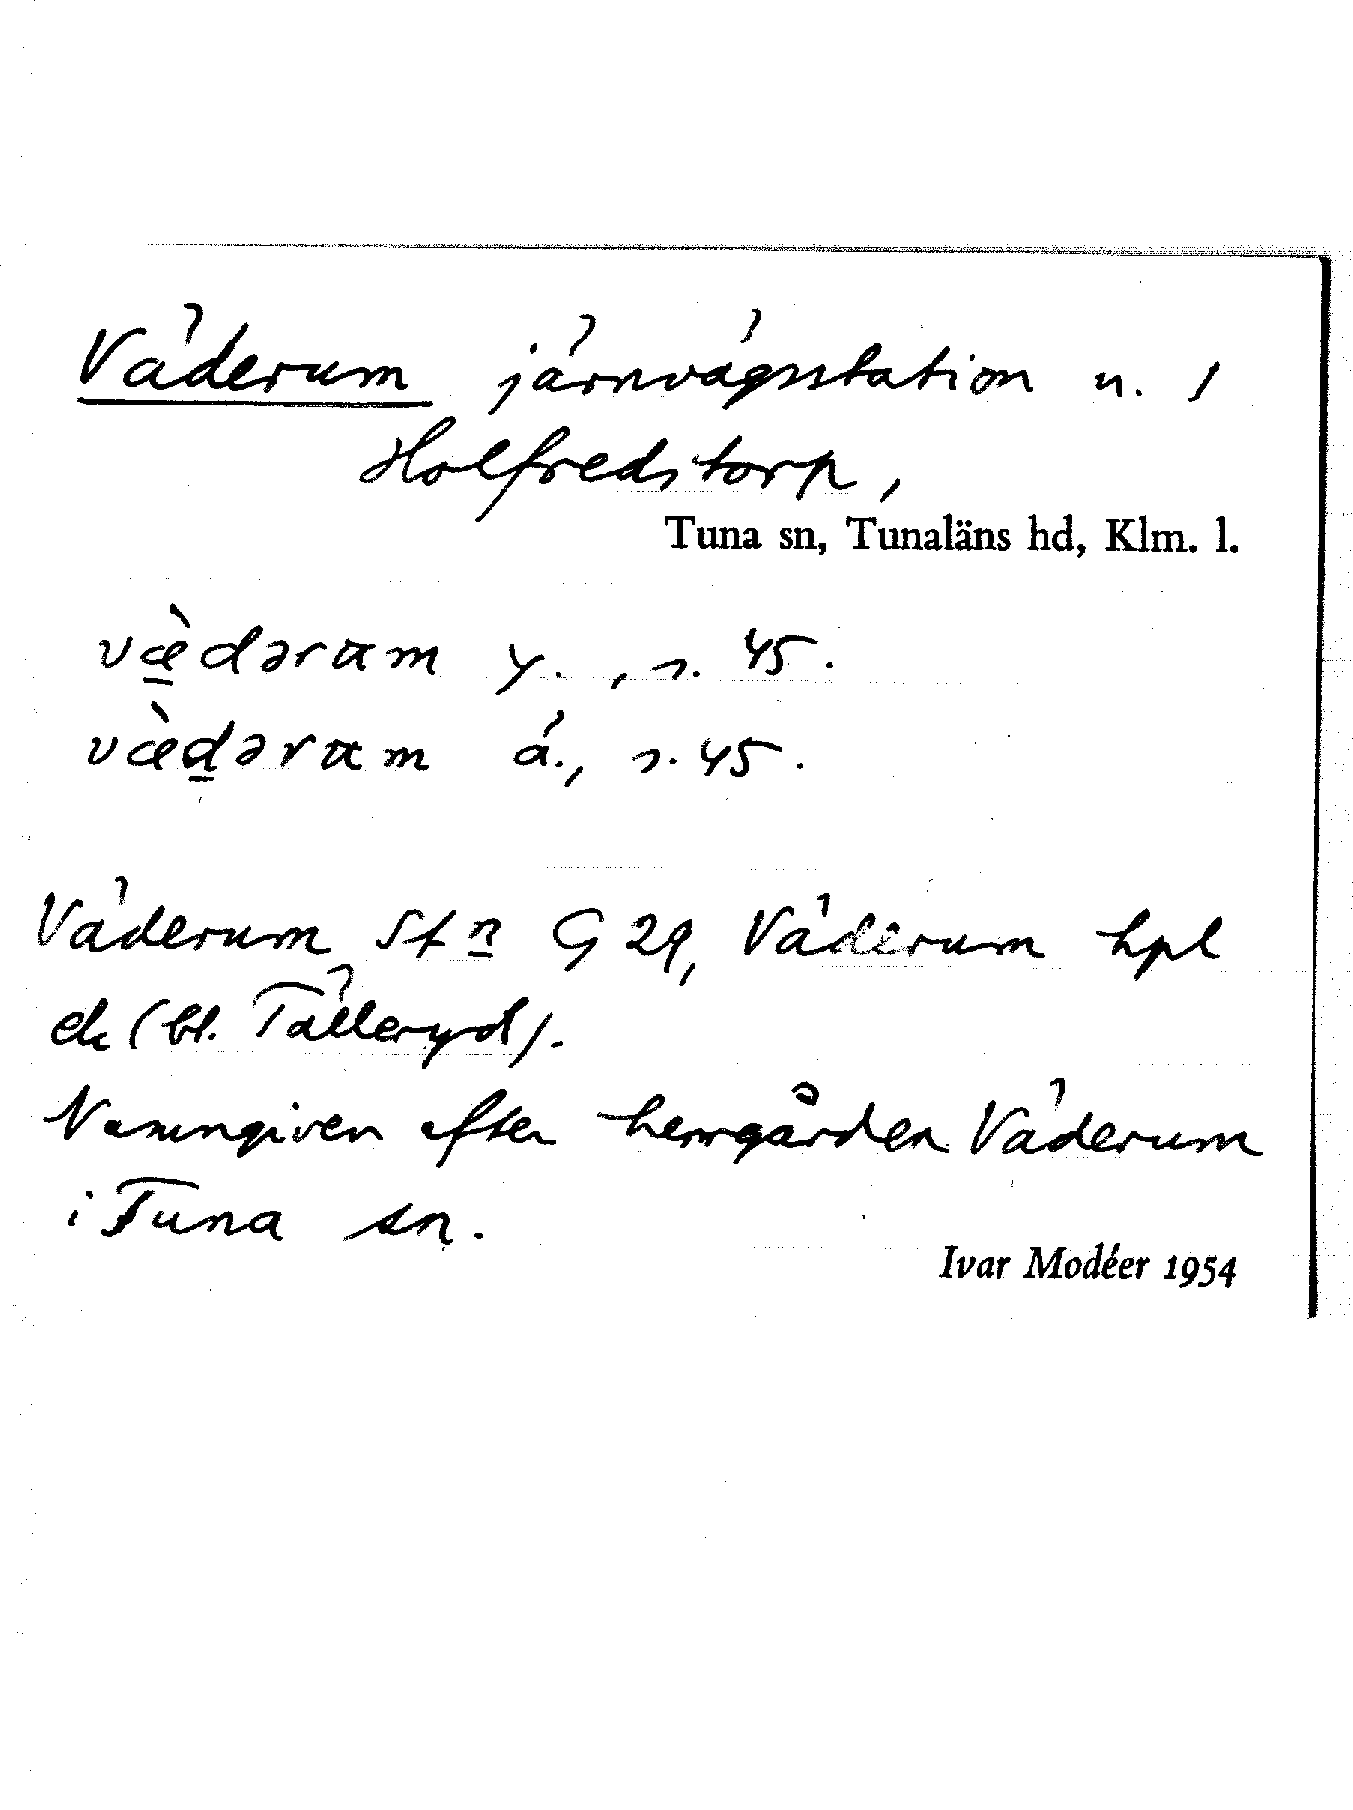 Väderum järnvägsstation n. 1
Holfredstorp,
Tuna sn, Tunaläns hd, Klm. l.
væ̀dərɑm y., s. 45.
væ̀dərɑm ä., s. 45.
Väderum Stn G 29, Väderum hpl
ek (bl. Tälleryd).
Namngiven efter herrgården Väderum
i Tuna sn.
Ivar Modéer 1954